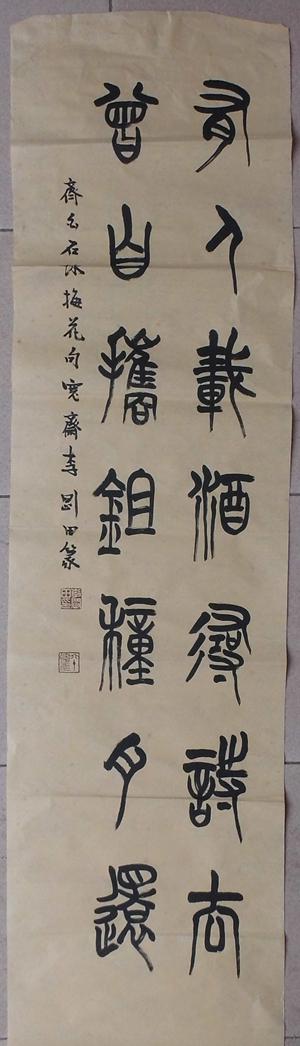 有人載酒尋詩去
曾自攜鉏種月還
齊白石詠梅花句寬齋李剛田篆